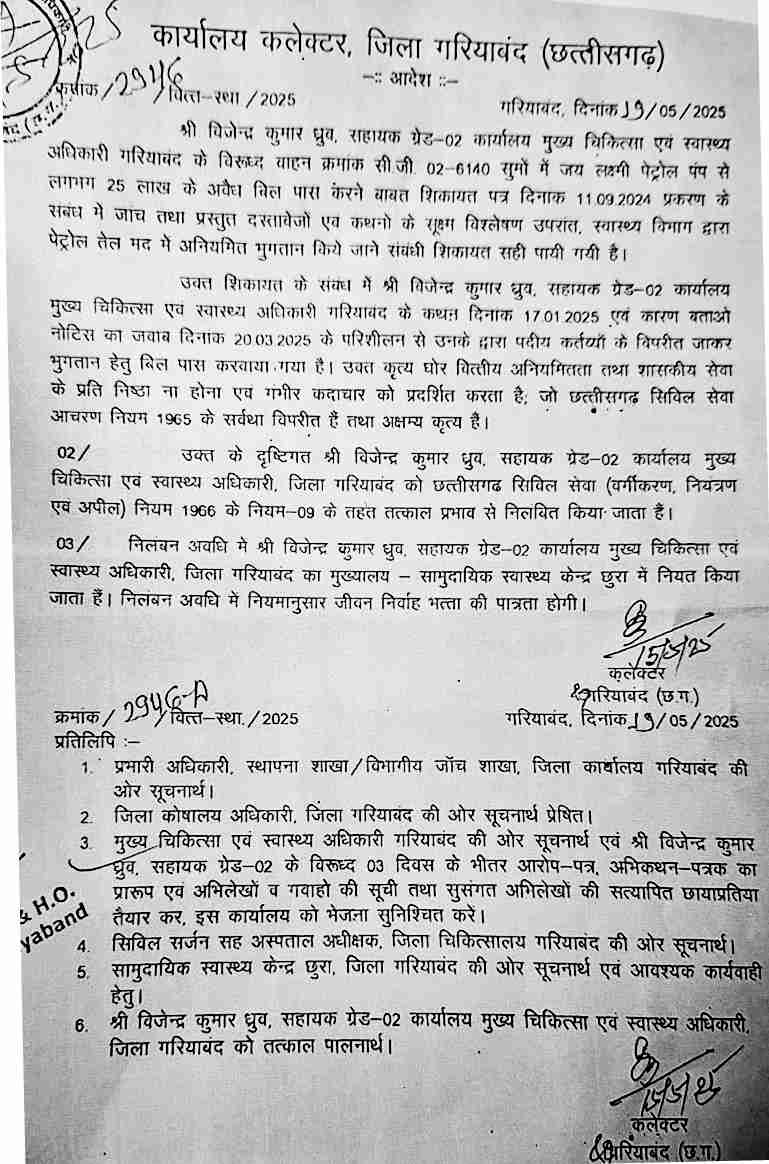 कार्यालय कलेक्टर, जिला गरियाबंद (छत्तीसगढ़)
–:: आदेश ::–
क्रमांक /2946/वित्त–स्था /2025 गरियाबंद, दिनांक 19/05/2025
श्री विजेन्द्र कुमार ध्रुव, सहायक ग्रेड–02 कार्यालय मुख्य चिकित्सा एवं स्वास्थ्य
अधिकारी गरियाबंद के विरूध्द वाहन क्रमांक सी.जी. 02–6140 सुमों में जय लक्ष्मी पेट्रोल पंप से
लगभग 25 लाख के अवैध बिल पारा करने बाबत शिकायत पत्र दिनाक 11.09.2024 प्रकरण के
संबंध मे जांच तथा प्रस्तुत दस्तावेजों एव कथनो के सूक्ष्म विश्लेषण उपरांत, स्वास्थ्य विभाग द्वारा
पेट्रोल तेल मद मे अनियमित भुगतान किये जाने संबंधी शिकायत सही पायी गयी है।
उक्त शिकायत के संबंध में श्री विजेन्द्र कुमार ध्रुव, सहायक ग्रेड–02 कार्यालय
मुख्य चिकित्सा एवं स्वास्थ्य अधिकारी गरियाबंद के कथन दिनांक 17.01.2025 एवं कारण बताओ
नोटिस का जवाब दिनाक 20.03.2025 के परिशीलन से उनके द्वारा पदीय कर्तव्यों के विपरीत जाकर
भुगतान हेतु बिल पास करवाया गया है। उक्त कृत्य घोर वित्तीय अनियमितता तथा शासकीय सेवा
के प्रति निष्ठा ना होना एव गंभीर कदाचार को प्रदर्शित करता है; जो छत्तीसगढ़ सिविल सेवा
आचरण नियम 1965 के सर्वथा विपरीत हैं तथा अक्षम्य कृत्य हैं।
02/ उक्त के दृष्टिगत श्री विजेन्द्र कुमार ध्रुव, सहायक ग्रेड–02 कार्यालय मुख्य
चिकित्सा एवं स्वास्थ्य अधिकारी, जिला गरियाबंद को छत्तीसगढ सिविल सेवा (वर्गीकरण, नियंत्रण
एवं अपील) नियम 1966 के नियम–09 के तहत तत्काल प्रभाव से निलंबित किया जाता हैं।
03/ निलंबन अवधि मे श्री विजेन्द्र कुमार ध्रुव, सहायक ग्रेड–02 कार्यालय मुख्य चिकित्सा एवं
स्वास्थ्य अधिकारी, जिला गरियाबंद का मुख्यालय – सामुदायिक स्वास्थ्य केन्द्र छुरा में नियत किया
जाता हैं। निलंबन अवधि में नियमानुसार जीवन निर्वाह भत्ता की पात्रता होगी।
15/5/25
कलेक्टर
गरियाबंद (छ.ग.)
क्रमांक/ 2946-A /वित्त–स्था./2025 गरियाबंद, दिनांक 19/05/2025
प्रतिलिपि :–
1. प्रभारी अधिकारी, स्थापना शाखा/विभागीय जॉच शाखा, जिला कार्यालय गरियाबंद की
ओर सूचनार्थ।
2. जिला कोषालय अधिकारी, जिला गरियाबंद की ओर सूचनार्थ प्रेषित।
3. मुख्य चिकित्सा एवं स्वास्थ्य अधिकारी गरियाबंद की ओर सूचनार्थ एवं श्री विजेन्द्र कुमार
ध्रुव, सहायक ग्रेड–02 के विरूध्द 03 दिवस के भीतर आरोप–पत्र, अभिकथन–पत्रक का
प्रारूप एवं अभिलेखों व गवाहो की सूची तथा सुसंगत अभिलेखों की सत्यापित छायाप्रतिया
तैयार कर, इस कार्यालय को भेजना सुनिश्चित करें।
& H.O.
yaband
4. सिविल सर्जन सह अस्पताल अधीक्षक, जिला चिकित्सालय गरियाबंद की ओर सूचनार्थ।
5. सामुदायिक स्वास्थ्य केन्द्र छुरा, जिला गरियाबंद की ओर सूचनार्थ एवं आवश्यक कार्यवाही
हेतु।
6. श्री विजेन्द्र कुमार ध्रुव, सहायक ग्रेड–02 कार्यालय मुख्य चिकित्सा एवं स्वास्थ्य अधिकारी,
जिला गरियाबंद को तत्काल पालनार्थ।
15/5/25
कलेक्टर
गरियाबंद (छ.ग.)